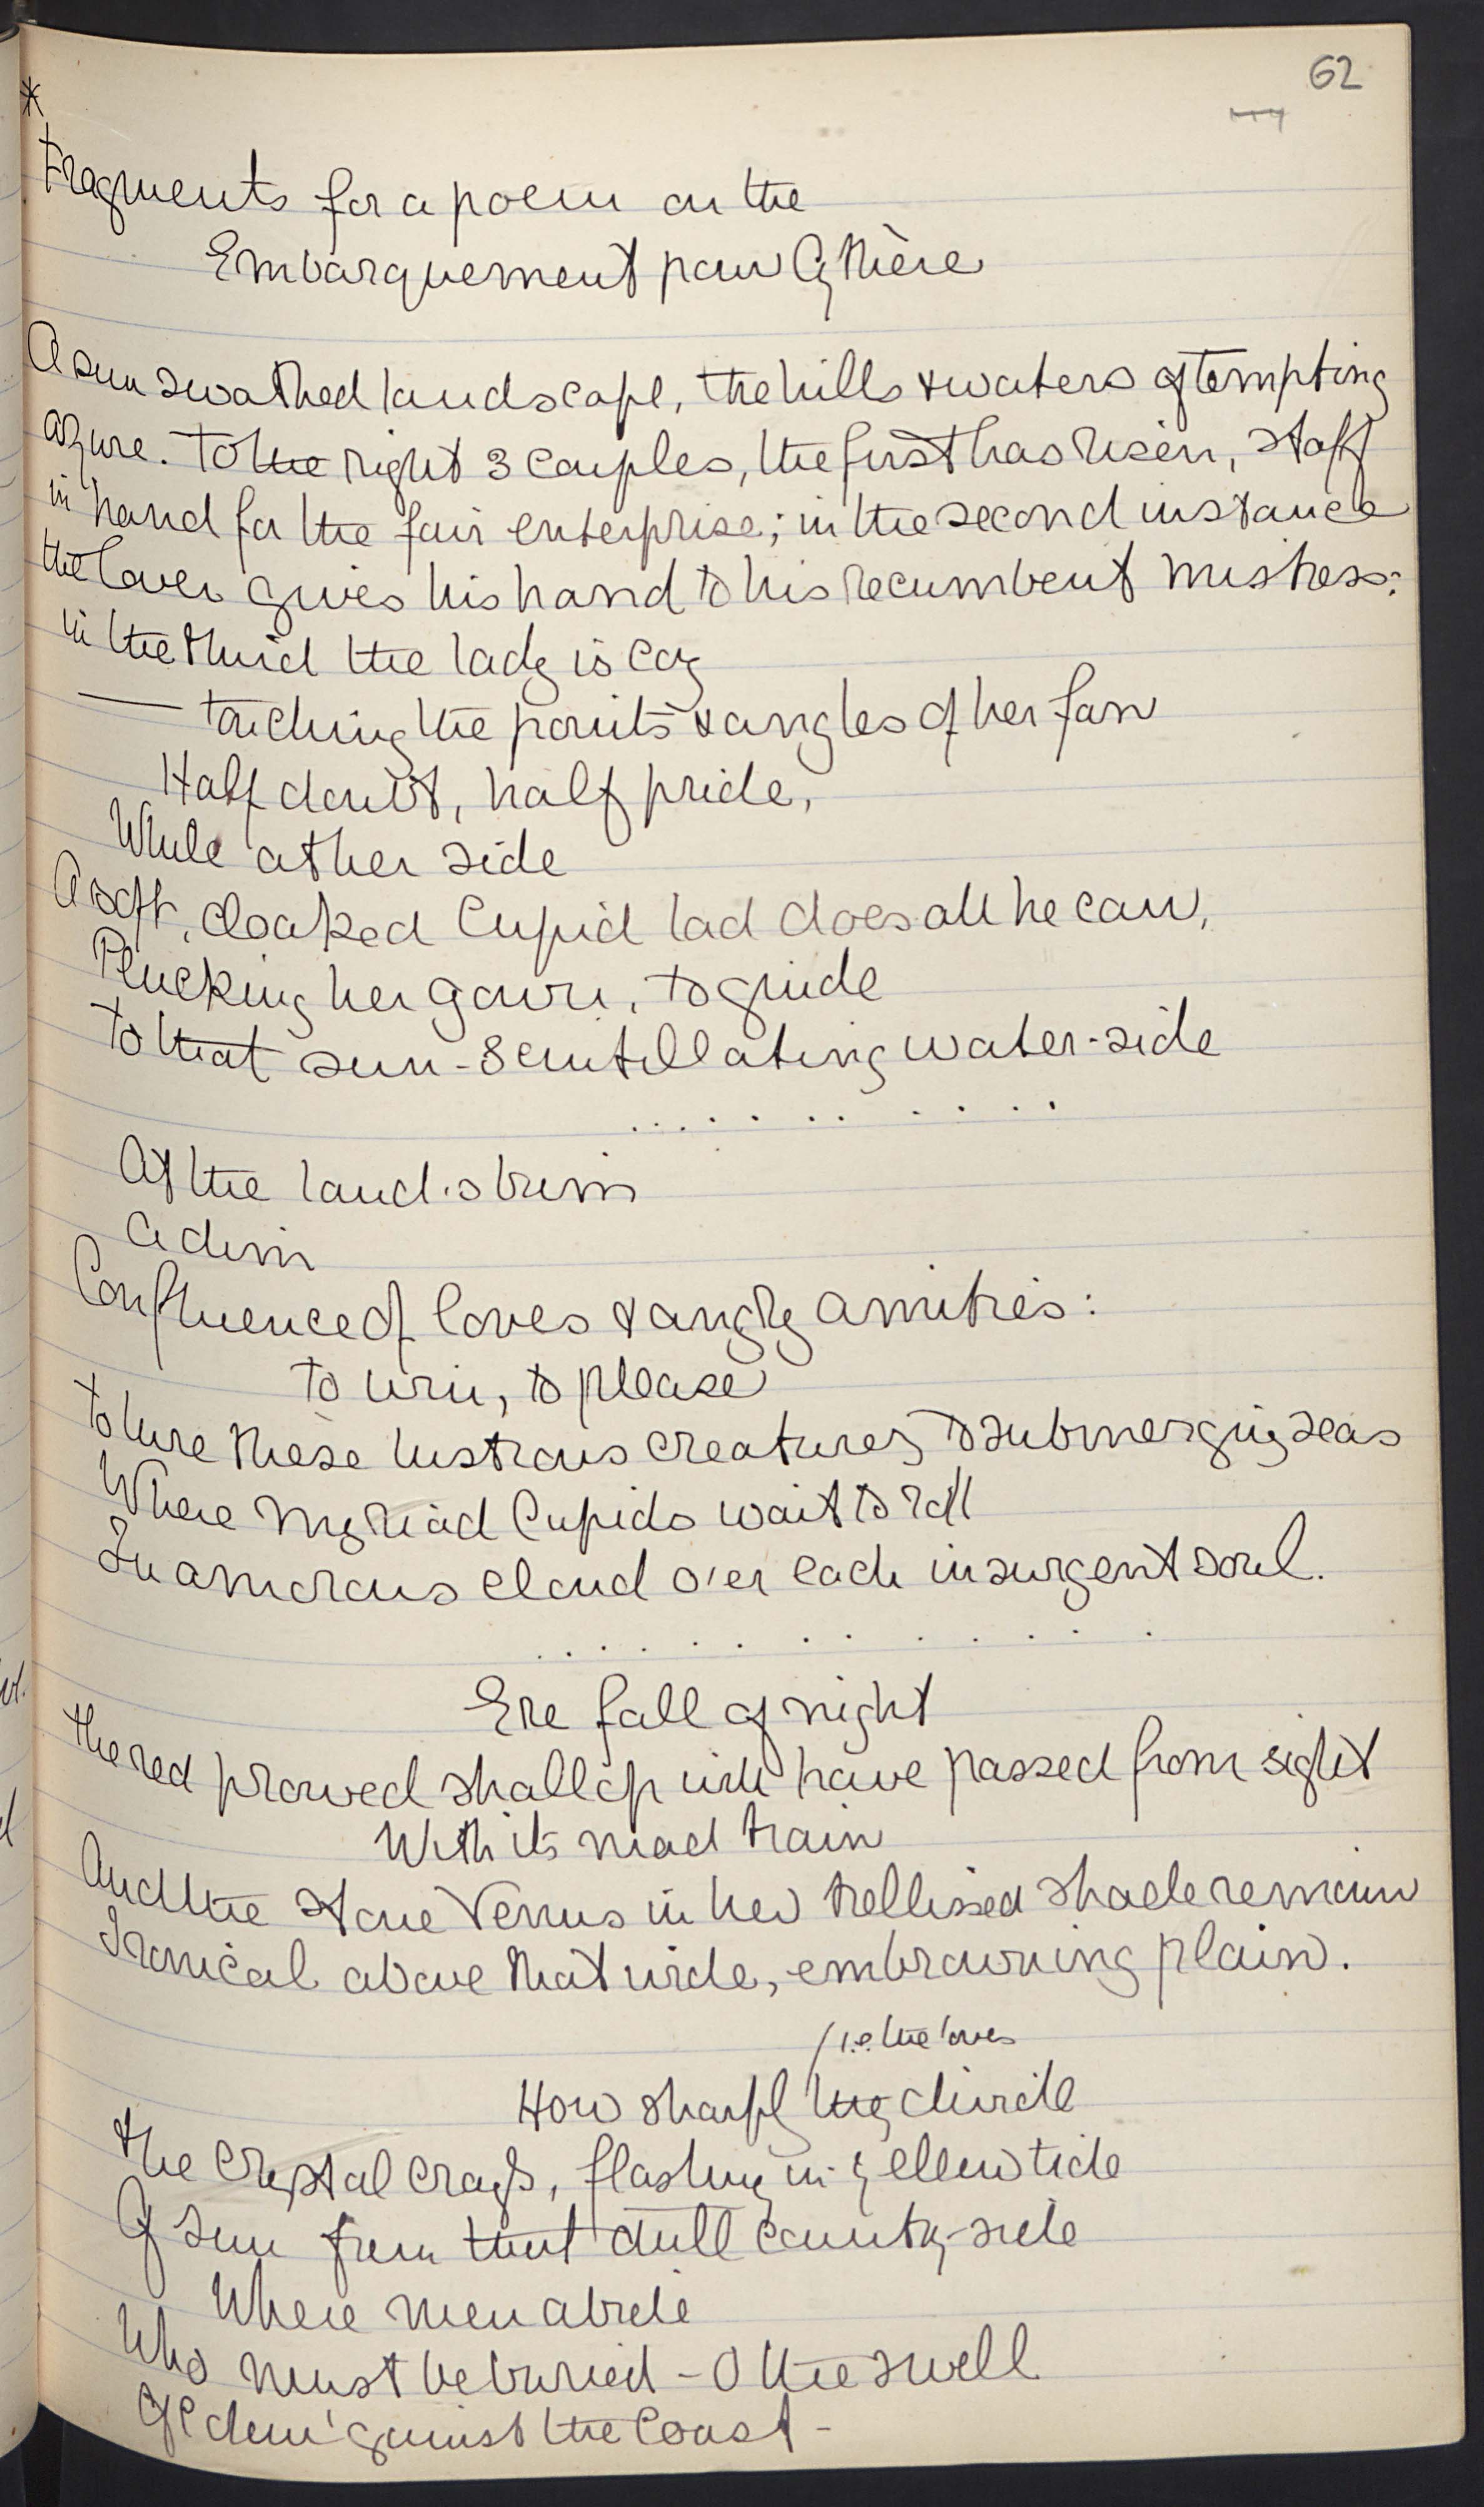 62
*
Fragments for a poem on the
Embarquement pour Cythère
A sun swathed landscape, the hills & waters of tempting
azure. To the right 3 couples, the first has risen, staff
in hand for the fair enterprise; in the second instance
the lover gives his hand to his recumbent mistress:
in the third the lady is coy
— touching the points & angles of her fan
Half doubt, half pride,
While at her side
A soft, cloaked Cupid lad does all he can,
Plucking her gown, to guide
To that sun-scintillating water-side
. . . . . . . . . .
At the land's brim
A dim
Confluence of loves & angry amities:
To win, to please
To lure these lustrous creatures to submerging seas
Where myriad Cupids wait to roll
In amorous cloud o'er each insurgent soul.
. . . . . . . . . . .
Ere fall of night
The red prowed shallop will have passed from sight
With its mad train
And the stone Venus in her trellissed shade remain
Ironical above that wide, embrowning plain.
/i.e. the loves
How sharply they divide
The crystal crags, flashing in yellow tide
Of sun from that dull country-side
Where men abide
Who must be buried - O the swell
Of 'gainst the Coast -